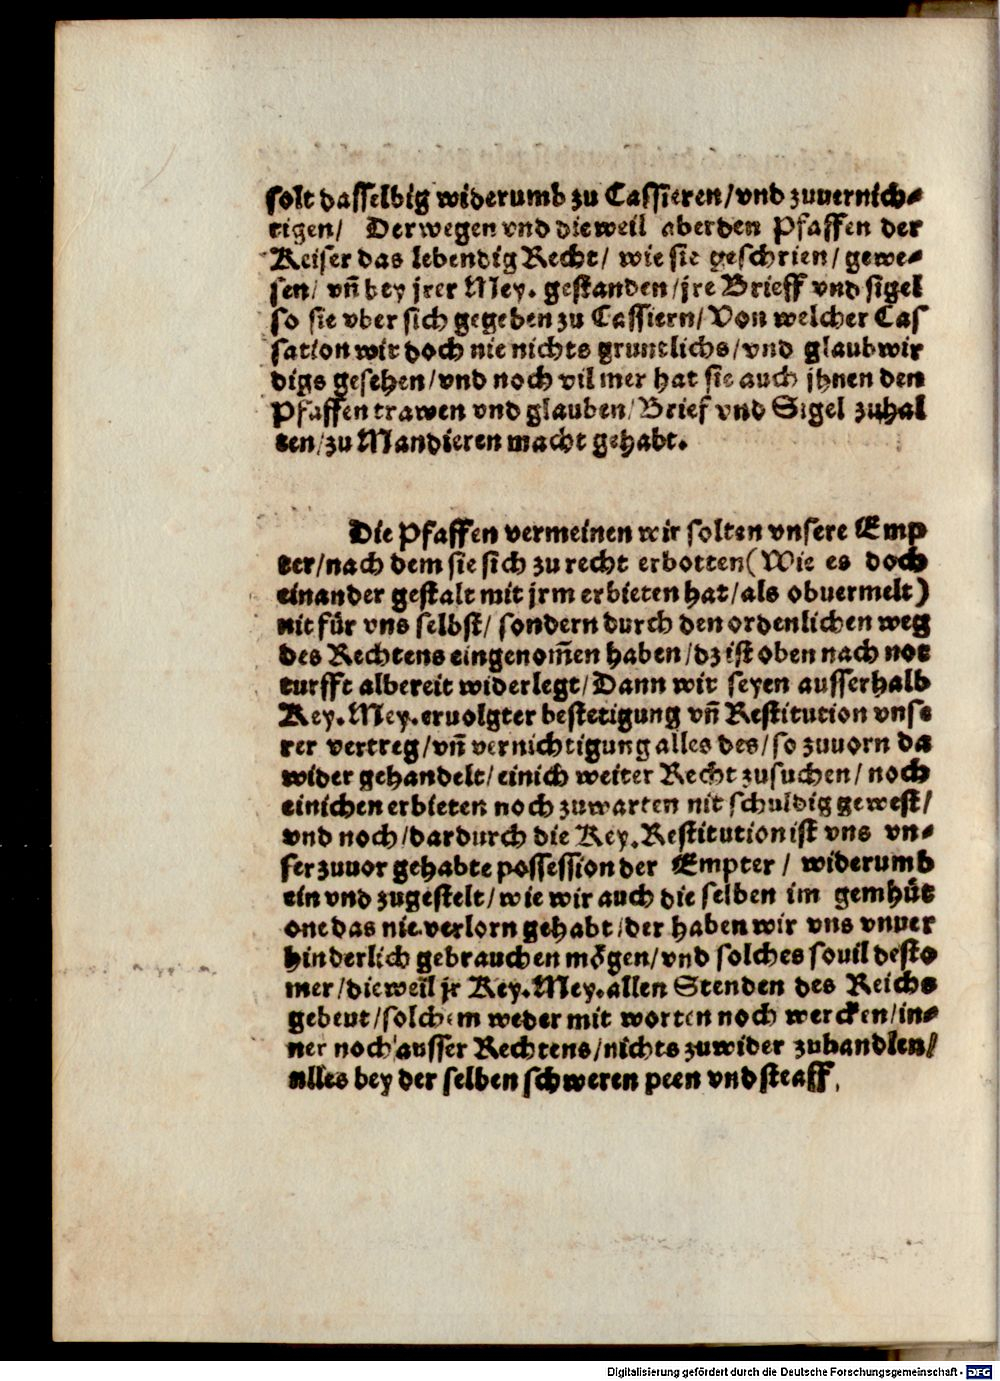 solt dasselbig widerumb zu Cassieren/vnd zuuernich⸗
tigen/ Derwegen vnd dieweil aber den Pfaffen der
Keiser das lebendig Recht/ wie sie geschrien/ gewe⸗
sen/ vñ bey jrer Mey. gestanden/jre Brieff vnd sigel
so sie vber sich gegeben zu Cassiern/Von welcher Cas
sation wir doch nie nichts gruntlichs/vnd glaubwir
digs gesehen/vnd noch vil mer hat sie auch jhnen den
Pfaffen trawen vnd glauben/Brief vnd Sigel zuhal
ten/zu Mandieren macht gehabt.
Die Pfaffen vermeinen wir solten vnsere Emp
ter/nach dem sie sich zu recht erbotten(Wie es doch
einander gestalt mit jrm erbieten hat/als obuermelt)
nit für vns selbst/ sondern durch den ordenlichen weg
des Rechtens eingenom̃en haben/dz ist oben nach not
turfft albereit widerlegt/Dann wir seyen ausserhalb
Key.Mey.eruolgter bestetigung vñ Restitution vnse
rer vertreg/vñ vernichtigung alles des/so zuuorn da
wider gehandelt/einich weiter Recht zusuchen/ noch
einichen erbieten noch zuwarten nit schuldig gewest/
vnd noch/dardurch die Key.Restitution ist vns vn⸗
ser zuuor gehabte possession der Empter/ widerumb
ein vnd zugestelt/wie wir auch die selben im gemhüt
one das nie verlorn gehabt/der haben wir vns vnuer
hinderlich gebrauchen mögen/vnd solches souil desto
mer/dieweil jr Key.Mey.allen Stenden des Reichs
gebeut/solchem weder mit worten noch wercken/in⸗
ner noch ausser Rechtens/nichts zuwider zuhandlen/
alles bey der selben schweren peen vnd straff.
Digitalisierung gefördert durch die Deutsche Forschungsgemeinschaft - DFG